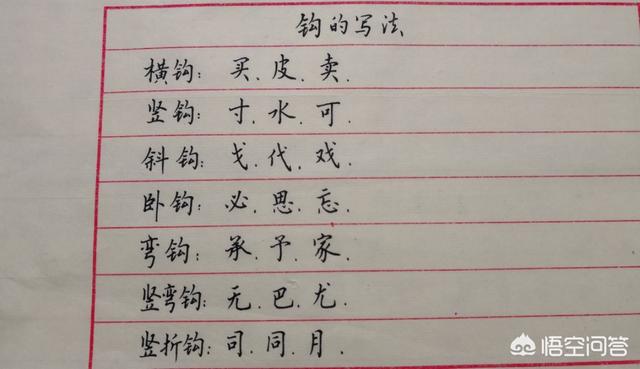 钩的写法
横钩：买．皮．卖．
竖钩：寸．水．可．
斜钩：戈．代．戏．
卧钩：必．思．忘．
弯钩：承．予．家．
竖弯钩：无．巴．尤．
竖折钩：司．同．月．
悟空问答